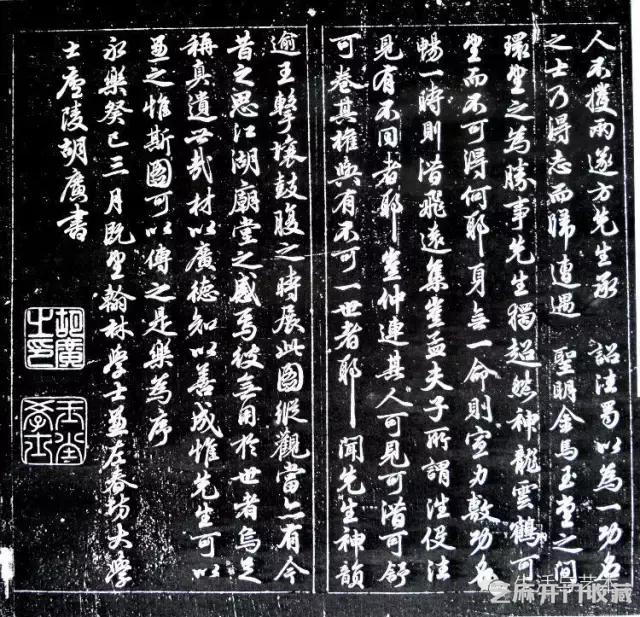 人不獲兩遂方先生承 詔法蜀以為一功名
之士乃得志而歸遭遇 聖明金馬玉堂之間
環望之為勝事先生獨超然神龍雲鶴可
望而不可得何耶身無一命則宣力數功名
暢一時則潛飛遠集豈孟夫子所謂往役法
見有不同者耶豈仲連其人可見可潛可舒
可卷其權與有不可一世者耶聞先生神韻
逾王擊壤鼓腹之時展此圖縱觀當亦有今
昔之思江湖廟堂之感焉彼無用於世者烏足
稱真遺世哉材以廣德知以善成惟先生可以
並之惟斯圖可以傳之是樂為序
永樂癸巳三月既望翰林學士兼左春坊大學
士廬陵胡廣書
胡廣